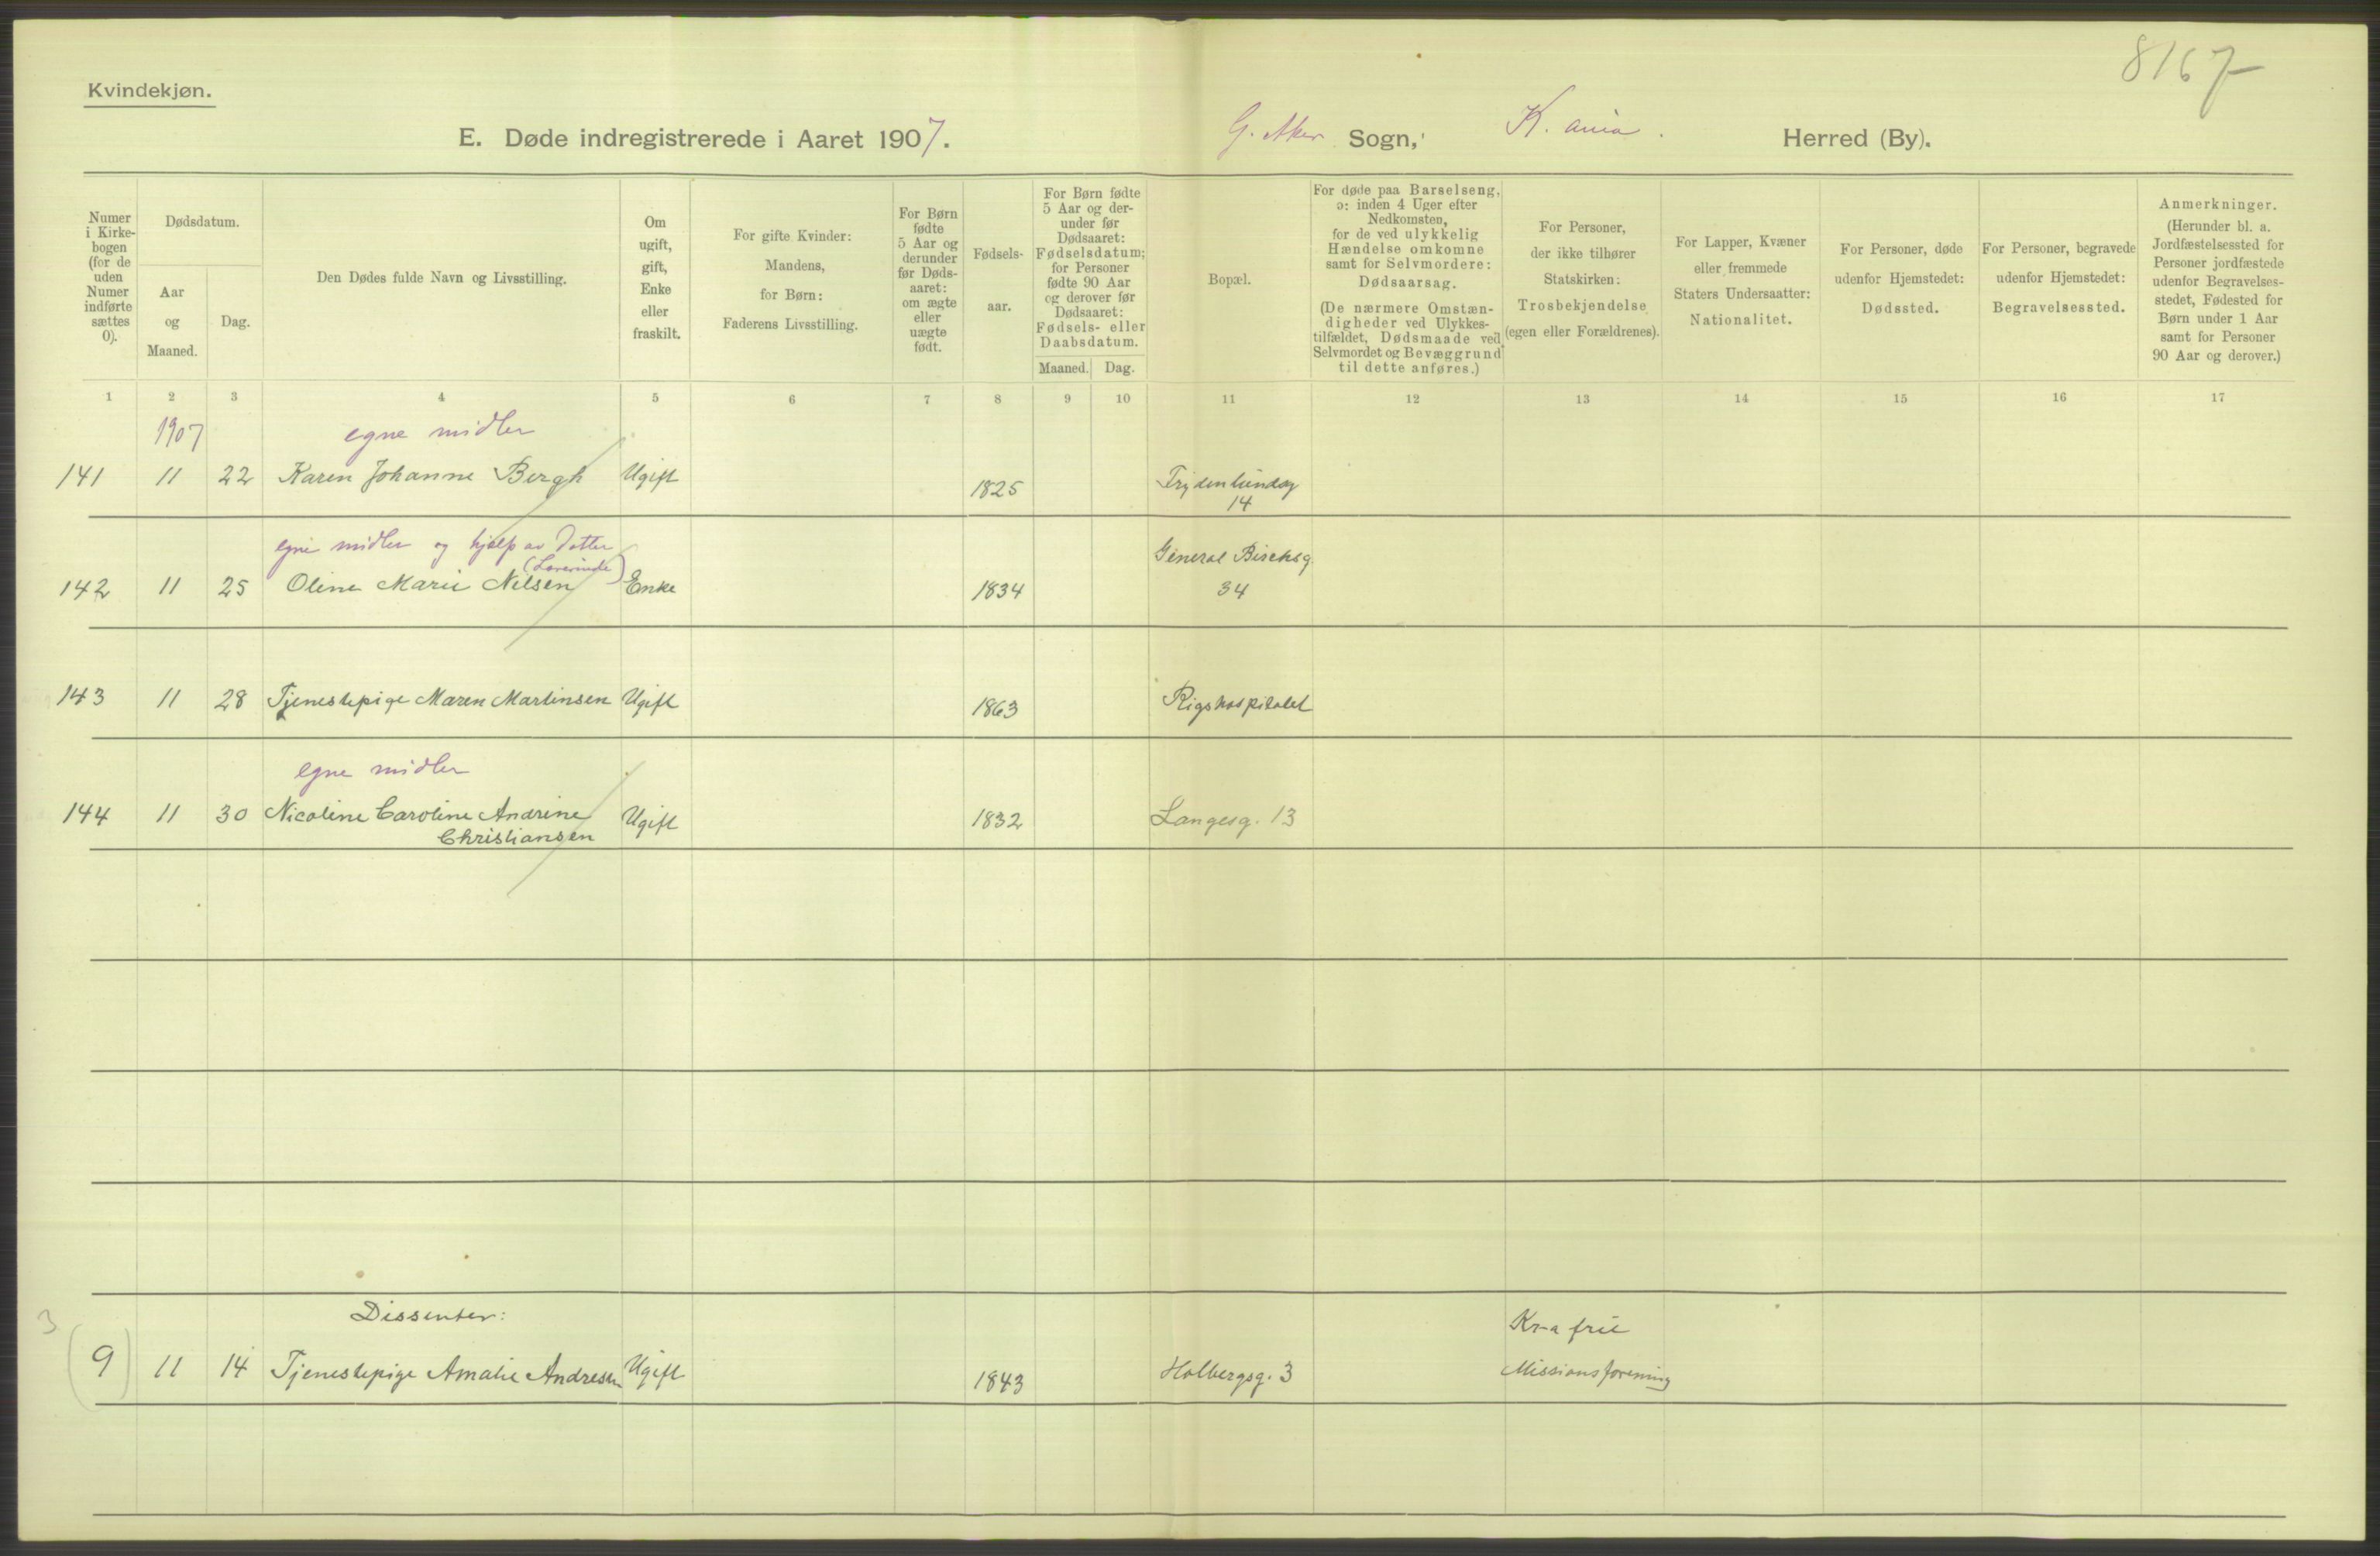 8167
Kvindekjøn.
E. Døde indregistrerede i Aaret 1907. G. Aker Sogn, K.ania. Herred (By).
Numer
i Kirke-
bogen
(for de
uden
Numer
indførte
sættes
0).
Dødsdatum.
Aar
og
Maaned.
Dag.
Den Dødes fulde Navn og Livsstilling.
Om
ugift,
gift,
Enke
eller
fraskilt.
For gifte Kvinder:
Mandens,
for Børn:
Faderens Livsstilling.
For Børn
fødte
5 Aar og
derunder
før Døds-
aaret:
om ægte
eller
uægte
født.
Fødsels-
aar.
For Børn fødte
5 Aar og der-
under før
Dødsaaret:
Fødselsdatum;
for Personer
fødte 90 Aar
og derover før
Dødsaaret:
Fødsels- eller
Daabsdatum.
Maaned. Dag.
Bopæl.
For døde paa Barselseng,
ɔ: inden 4 Uger efter
Nedkomsten,
for de ved ulykkelig
Hændelse omkomne
samt for Selvmordere:
Dødsaarsag.
(De nærmere Omstæn-
digheder ved Ulykkes-
tilfældet, Dødsmaade ved
Selvmordet og Bevæggrund
til dette anføres.)
For Personer,
der ikke tilhører
Statskirken:
Trosbekjendelse
(egen eller Forældrenes).
For Lapper, Kvæner
eller fremmede
Staters Undersaatter:
Nationalitet.
For Personer, døde
udenfor Hjemstedet:
Dødssted.
For Personer, begravede
udenfor Hjemstedet:
Begravelsessted.
Anmerkninger.
(Herunder bl. a.
Jordfæstelsessted for
Personer jordfæstede
udenfor Begravelses-
stedet, Fødested for
Børn under 1 Aar
samt for Personer
90 Aar og derover.)
1 2 3 4 5 6 7 8 9 10 11 12 13 14 15 16 17
1907 egne midler
141 11 22 Karen Johanne Bergh Ugift 1825 Frydenlundsg
14
egne midler og hjelp av Datter
(Lærerinde)
General Birchsg.
142 11 25 Oline Marie Nelsen Enke 1834 34
143 11 28 Tjenestepige Maren Martinsen Ugift 1863 Rigshospitalet
egne midler
144 11 30 Nicoline Caroline Andrine Ugift 1832 Langesg. 13
Christiansen
3
Dissenter: Kr-a frie
(9) 11 14 Tjenestepige Amalie Andresen Ugift 1843 Holbergsg. 3 Missionsforening